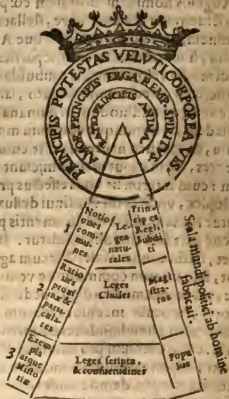 PRINCIPIS POTESTAS VELUTI CORPOREA VIS.
AMOR PRINCIPIS ERGA REMP. SPIRITVS.
RATIO PRINCIPIS ANIMA
1
Notio
ones com
mu
nes
Le-
ges
natu-
rales
Prin
cip es
Reg
Subdi
ti
2
Ratio
nes
propri
inæ &
particu-
lares
Leges
Ciuiles
Magi
stra-
tus
3
Exem
pla
atque
Histo
riæ
Leges scriptæ,
& consuetudines
Popu
lus
Scala mundi politici ab homine
fabricati.